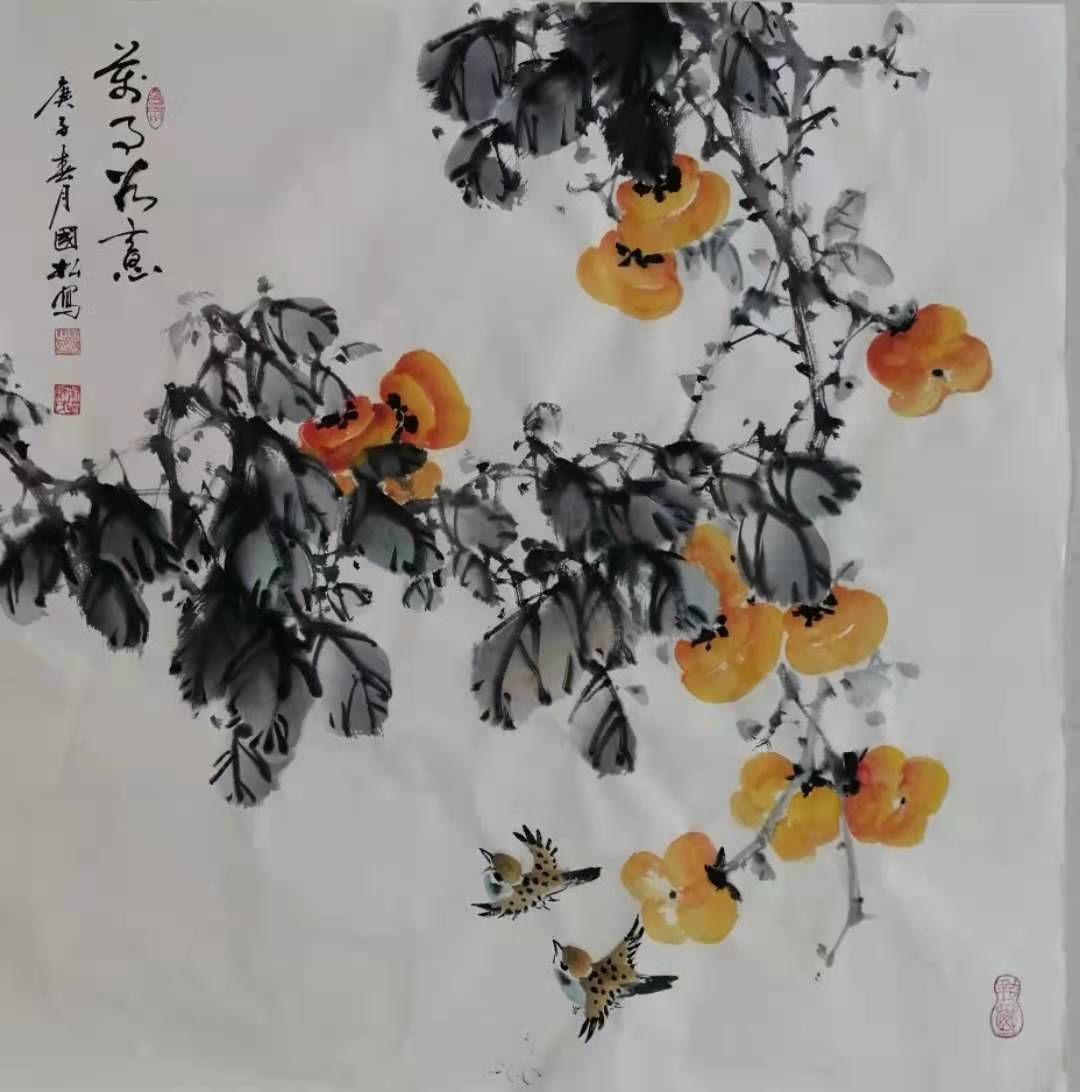 萬事如意
庚子春月國松寫